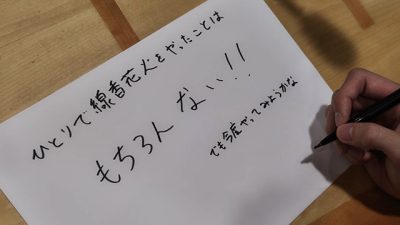 ひとりで線香花火をやったことは
もちろん ない!!
でも今度やってみようかな